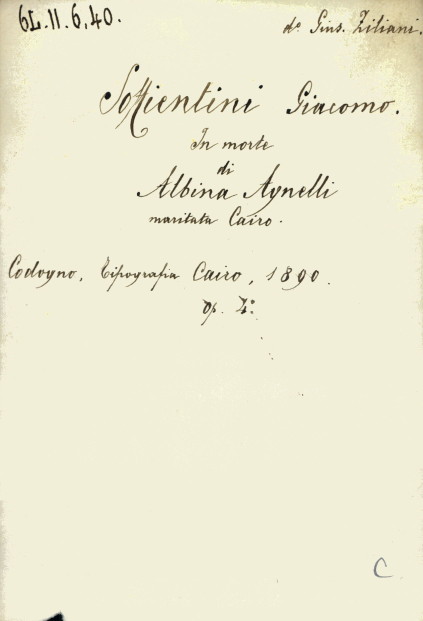 6L.II.6,40.
d.º Gius. Ziliani.
Soffientini Giacomo.
In morte
di
Albina Agnelli
maritata Cairo.
Codogno, Tipografia Cairo, 1890.
op. 4.º
C